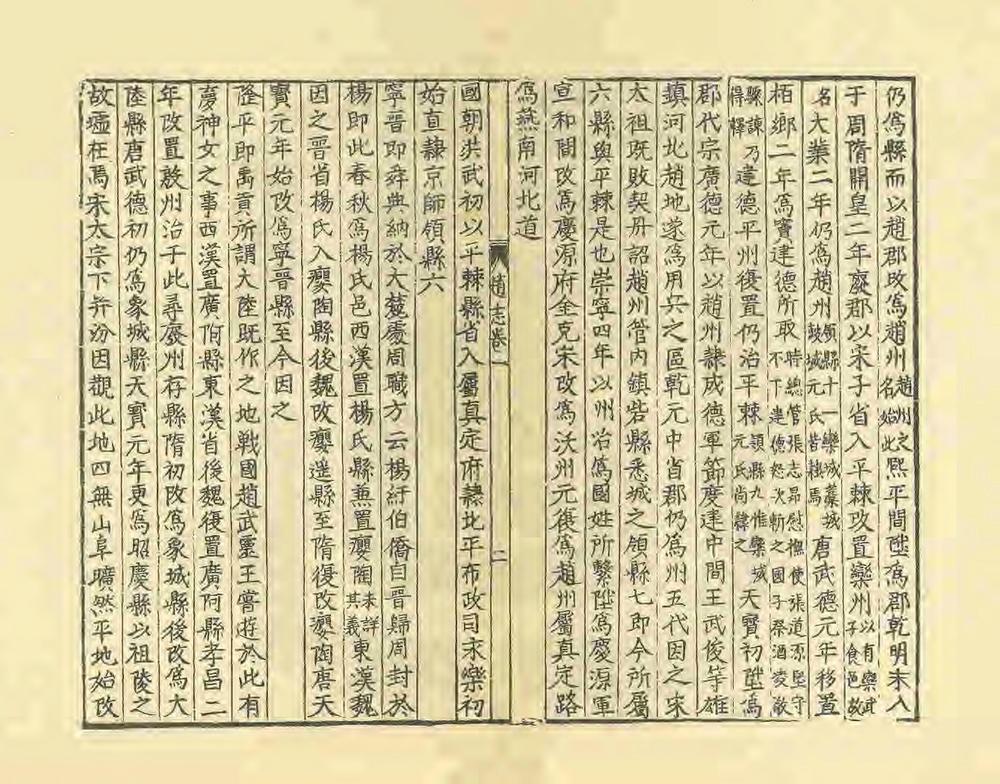 仍為縣而以趙郡改為趙州趙州之名始此熙平間陞為郡乾明末入
于周隋開皇二年廢郡以宋子省入平棘改置欒州以有欒武子食邑故
名大業二年仍為趙州領縣十一欒城藁城鼓城元氏皆隸焉唐武德元年移置
栢鄉二年為竇建德所取時總管張志昂慰撫使張道源堅守不下建德怒欲斬之國子祭酒凌敬
驟諫乃得釋建德平州復置仍治平棘領縣九惟欒城元氏尚隸之天寶初陞為
郡代宗廣德元年以趙州隸成德軍節度建中間王武俊等雄
鎮河北趙地遂為用兵之區乾元中省郡仍為州五代因之宋
太祖既敗契丹詔趙州管內鎮砦縣悉城之領縣七即今所屬
六縣與平棘是也崇寧四年以州治為國姓所繫陞為慶源軍
宣和間改為慶源府金克宋改為沃州元復為趙州屬真定路
為燕南河北道
趙志卷一
二
國朝洪武初以平棘縣省入屬真定府隸北平布政司永樂初
始直隸京師領縣六
寧晉即舜典納於大麓處周職方云楊紆伯僑自晉歸周封於
楊即此春秋為楊氏邑西漢置楊氏縣兼置癭陶未詳其義東漢魏
因之晉省楊氏入癭陶縣後魏改癭遥縣至隋復改癭陶唐天
寶元年始改為寧晉縣至今因之
隆平即禹貢所謂大陸既作之地戰國趙武靈王嘗遊於此有
夢神女之事西漢置廣阿縣東漢省後魏復置廣阿縣孝昌二
年改置殷州治于此尋廢州存縣隋初改為象城縣後改為大
陸縣唐武德初仍為象城縣天寶元年更為昭慶縣以祖陵之
故墟在焉宋太宗下并汾因觀此地四無山阜曠然平地始改